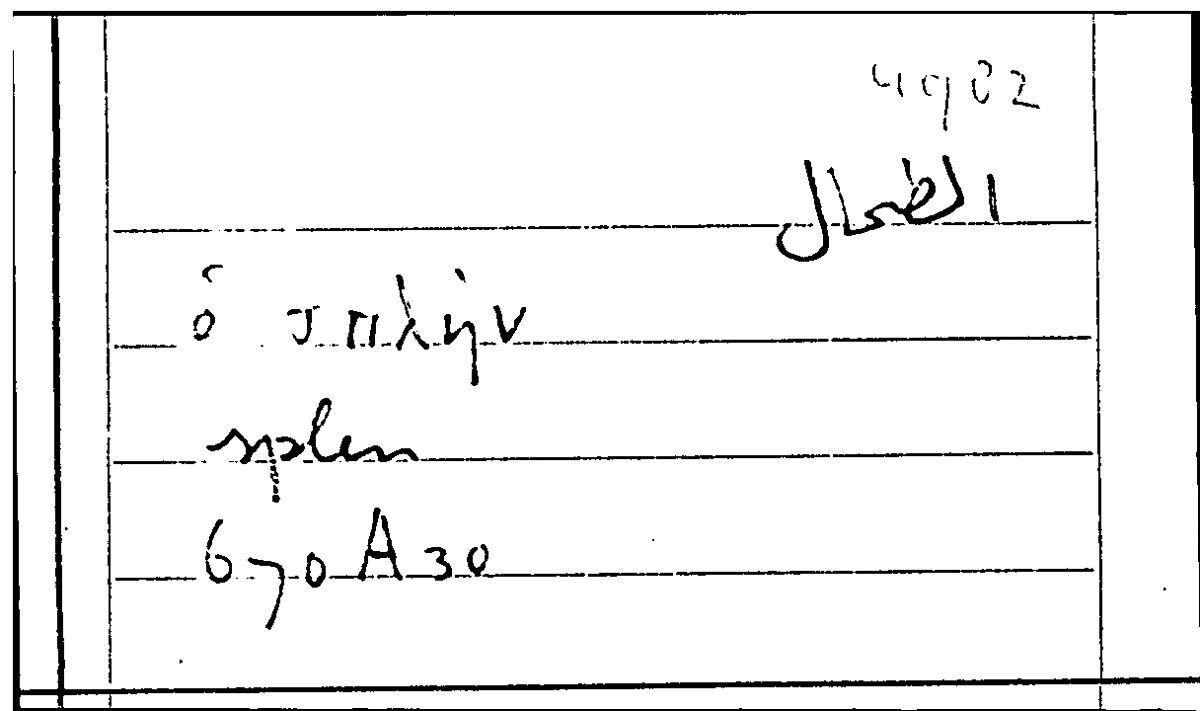 4902
الطحال
ὁ σπλήν
splen
670 A 30